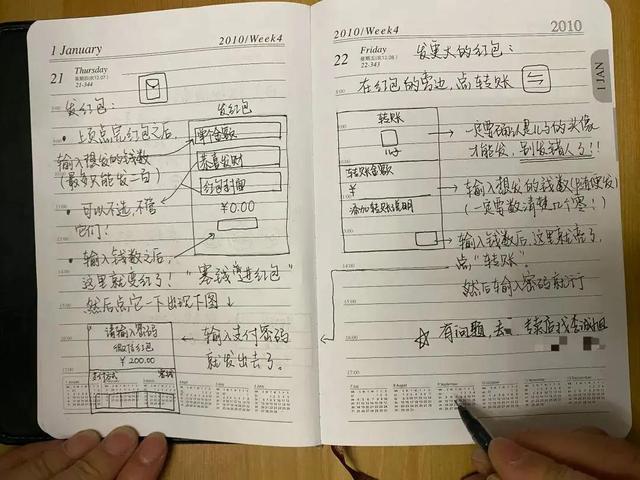 1 January
2010/Week4
21
Thursday
星期四(农12.07)
21-344
发红包:
发红包
• 上页点完红包之后,
输入想发的钱数
(最多只能发二百)
单个金额
恭喜发财
红包封面
¥0.00
• 可以不选,不管
它们!
• 输入钱数之后,
这里就变红了!“零钱塞进红包”
然后点它一下出现下图↓
请输入密码
微信红包
¥200.00
支付方式
零钱
← 输入支付密码
就发出去了。
2010/Week4
2010
22
Friday
星期五(农12.08)
22-343
1 JAN
发更大的红包:
在红包的旁边,点转账
转账
儿子
转账金额
¥
添加转账说明
→ 一定要确认是儿子的头像
才能发,别发错人了!!
→ 输入想发的钱数
(一定要数清楚几个零!)
→ 输入钱数后,这里就亮了,
点“转账”
然后输入密码就行
☆ 有问题,去